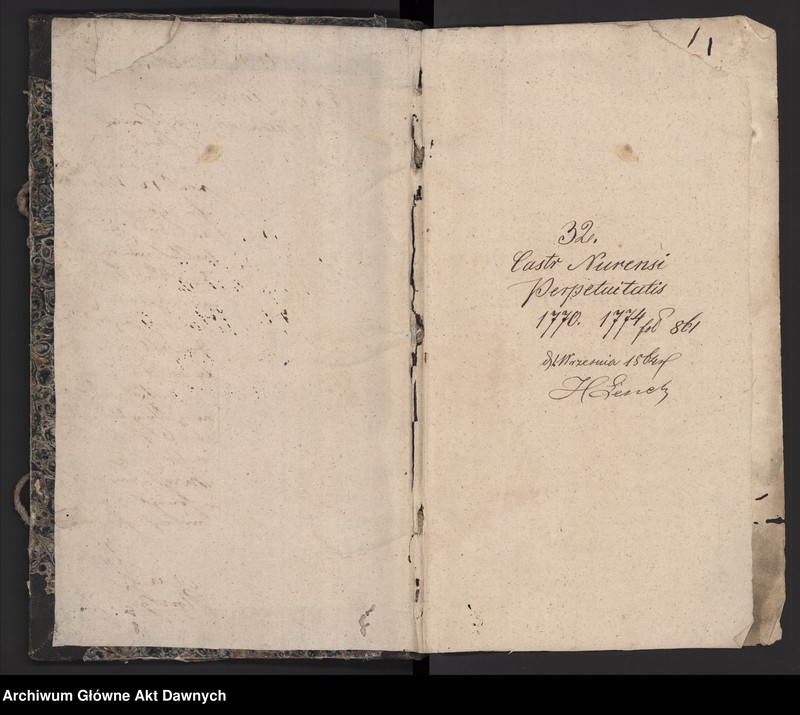 1
32.
Castr Nurensi
Perpetuitatis
1770. 1774 fol 861
Września
H Lenck
Archiwum Główne Akt Dawnych